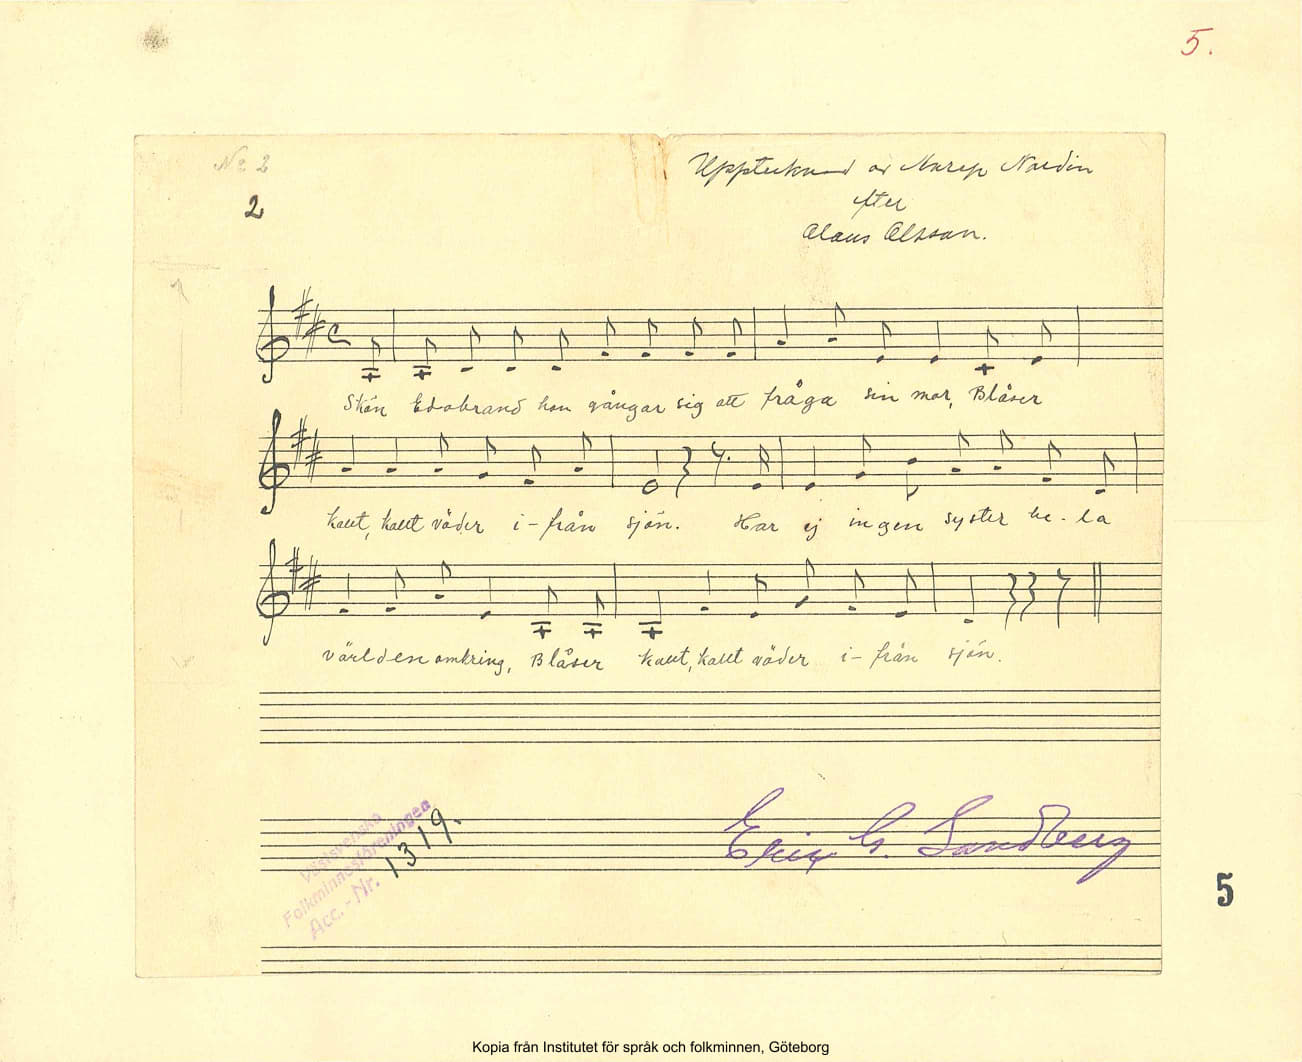 5.
No 2
2
Upptecknad av Nordin
efter
Olaus Olsson.
Skön Edobrand hon gångar sig att fråga sin mor, Blåser
kallt, kallt väder i-från sjön. Har ej ingen syster he-la
världen omkring, Blåser kallt, kallt väder i-från sjön.
Västsvenska
Folkminnesföreningen
Acc.-Nr. 1319.
Eric G. Sandberg
5
Kopia från Institutet för språk och folkminnen, Göteborg